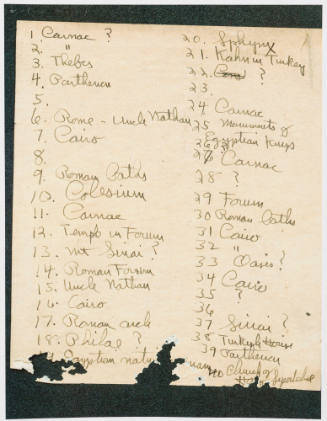 1. Carnac ?
2. "
3. Thebes
4. Parthenon
5.
6. Rome - Uncle Nathan
7. Cairo
8.
9. Roman Baths
10. Colesium
11. Carnac
12. Temple in Forum
13. Mt Sinai ?
14. Roman Forum
15. Uncle Nathan
16. Cairo
17. Roman arch
18. Philae ?
19. Egyptian
20. Sphynx
21. Kahn in Turkey
22. ?
23.
24. Carnac
25 Monuments of
Egyptian Kings
26
27 Carnac
28 - ?
29 Forum
30 Roman Baths
31 Cairo
32 "
33 Oasis ?
34 Cairo
35 ?
36
37 Sinai ?
38 Turkish
39 Parthenon
40 Church of
Sepulchre